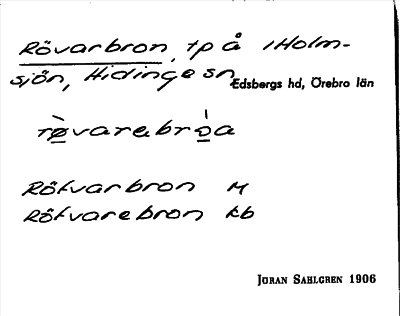 Rövarbron, tp å i Holm-
sjön, Hidinge sn, Edsbergs hd, Örebro län
rø̀varebrò̩a
Röfvarbron M
Röfvarebron kb
Jöran Sahlgren 1906